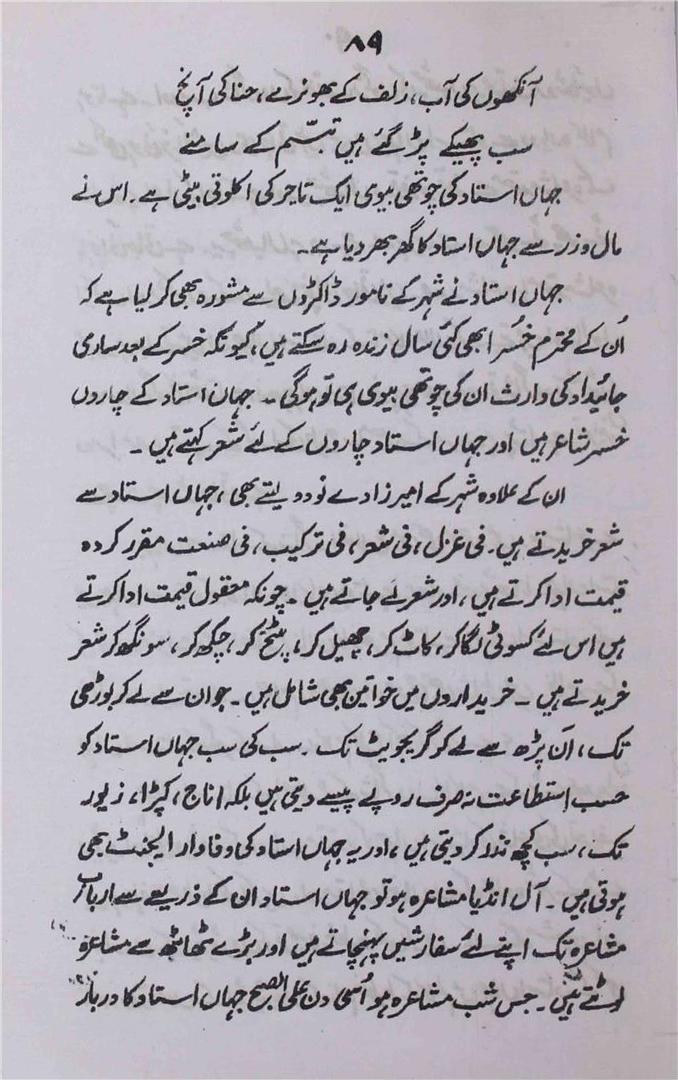 ۸۹
آنکھوں کی آب، زلف کے بھونرے، حنا کی آنچ
سب پھیکے پڑ گئے ہیں تبسّم کے سامنے
جہاں استاد کی چوتھی بیوی ایک تاجر کی اکلوتی بیٹی ہے۔ اس نے
مال و زر سے جہاں استاد کا گھر بھر دیا ہے۔
جہاں استاد نے شہر کے نامور ڈاکٹروں سے مشورہ بھی کر لیا ہے کہ
اُن کے محترم خُسر ابھی کئی سال زندہ رہ سکتے ہیں، کیونکہ خسر کے بعد ساری
جائیداد کی وارث ان کی چوتھی بیوی ہی تو ہوگی۔ جہاں استاد کے چاروں
خسر شاعر ہیں اور جہاں استاد چاروں کے لئے شعر کہتے ہیں۔
ان کے علاوہ شہر کے امیرزادے نو دولیتے بھی، جہاں استاد سے
شعر خریدتے ہیں۔ فی غزل، فی شعر، فی ترکیب، فی صنعت مقرر کردہ
قیمت ادا کرتے ہیں، اور شعر لے جاتے ہیں۔ چونکہ معقول قیمت ادا کرتے
ہیں اس لئے کسوٹی لگا کر، کاٹ کر، چھیل کر، پٹخ کر، چکھ کر، سونگھ کر شعر
خریدتے ہیں۔ خریداروں میں خواتین بھی شامل ہیں۔ جوان سے لے کر بوڑھی
تک، اَن پڑھ سے لے کر گریجویٹ تک۔ سب کی سب جہاں استاد کو
حسب استطاعت نہ صرف روپے پیسے دیتی ہیں بلکہ اناج، کپڑا، زیور
تک، سب کچھ نذر کر دیتی ہیں، اور یہ جہاں استاد کی وفادار ایجنٹ بھی
ہوتی ہیں۔ آل انڈیا مشاعرہ ہو تو جہاں استاد ان کے ذریعے سے ارباب
مشاعرہ تک اپنے لئے سفارشیں پہنچاتے ہیں اور بڑے ٹھاٹھ سے مشاعرہ
لوٹتے ہیں۔ جس شب مشاعرہ ہو اُسی دن علی الصبح جہاں استاد کا دربار